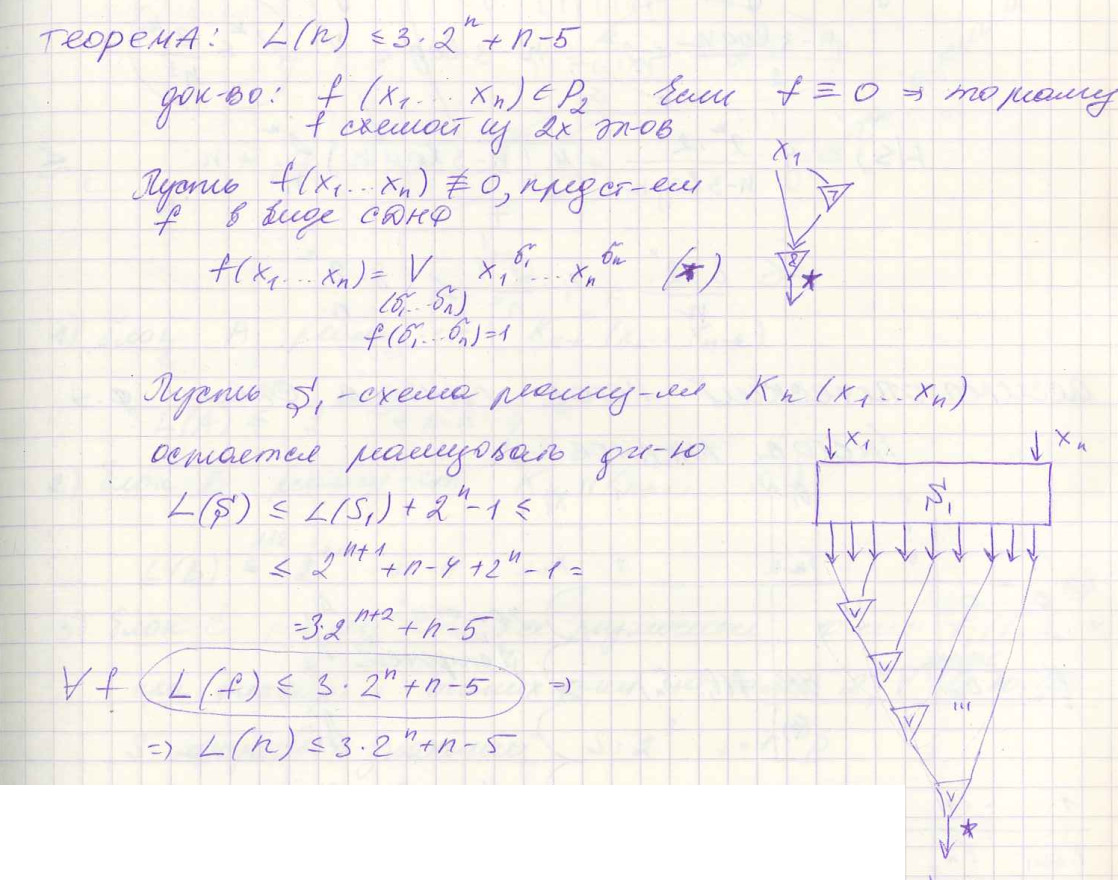 теорема: L(n) ≤ 3·2^n + n-5
док-во: f(x₁...xₙ) ∈ P₂ Если f ≡ 0 ⇒ то реализ
f схемой из 2х эл-ов
x₁
7
Пусть f(x₁...xₙ) ≢ 0, предст-ем
f в виде СДНФ
&
*
f(x₁...xₙ) = V x₁^σ₁ ... xₙ^σₙ (*)
(σ₁...σₙ)
f(σ₁...σₙ)=1
Пусть S₁-схема реализ-ая Kₙ(x₁..xₙ)
остается реализовать дн-ю
x₁ xₙ
S₁
L(S) ≤ L(S₁) + 2^n - 1 ≤
≤ 2^{n+1} + n-4 + 2^n - 1 =
=3·2^{n+2} + n-5
V
V
V
...
V
*
∀f L(f) ≤ 3·2^n + n-5 ⇒
⇒ L(n) ≤ 3·2^n + n-5